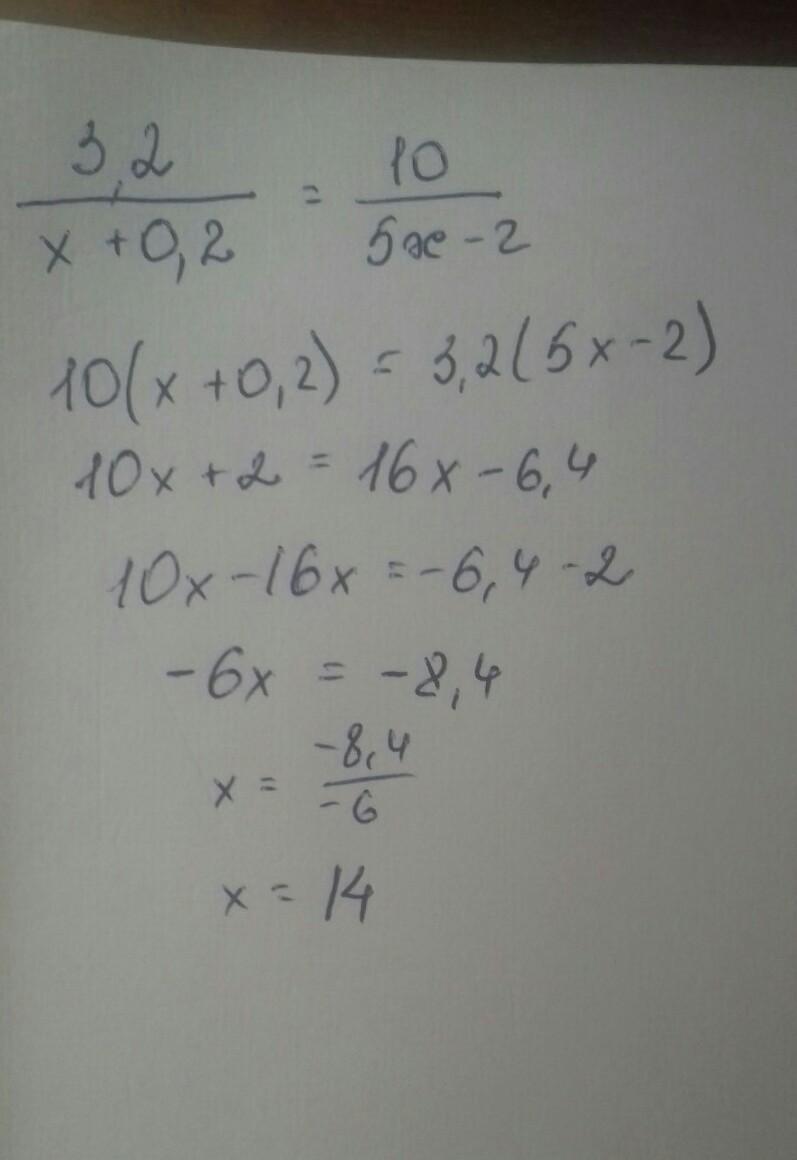 3,2 / x + 0,2 = 10 / 5x - 2
10(x + 0,2) = 3,2(5x - 2)
10x + 2 = 16x - 6,4
10x - 16x = -6,4 - 2
-6x = -8,4
x = -8,4 / -6
x = 14